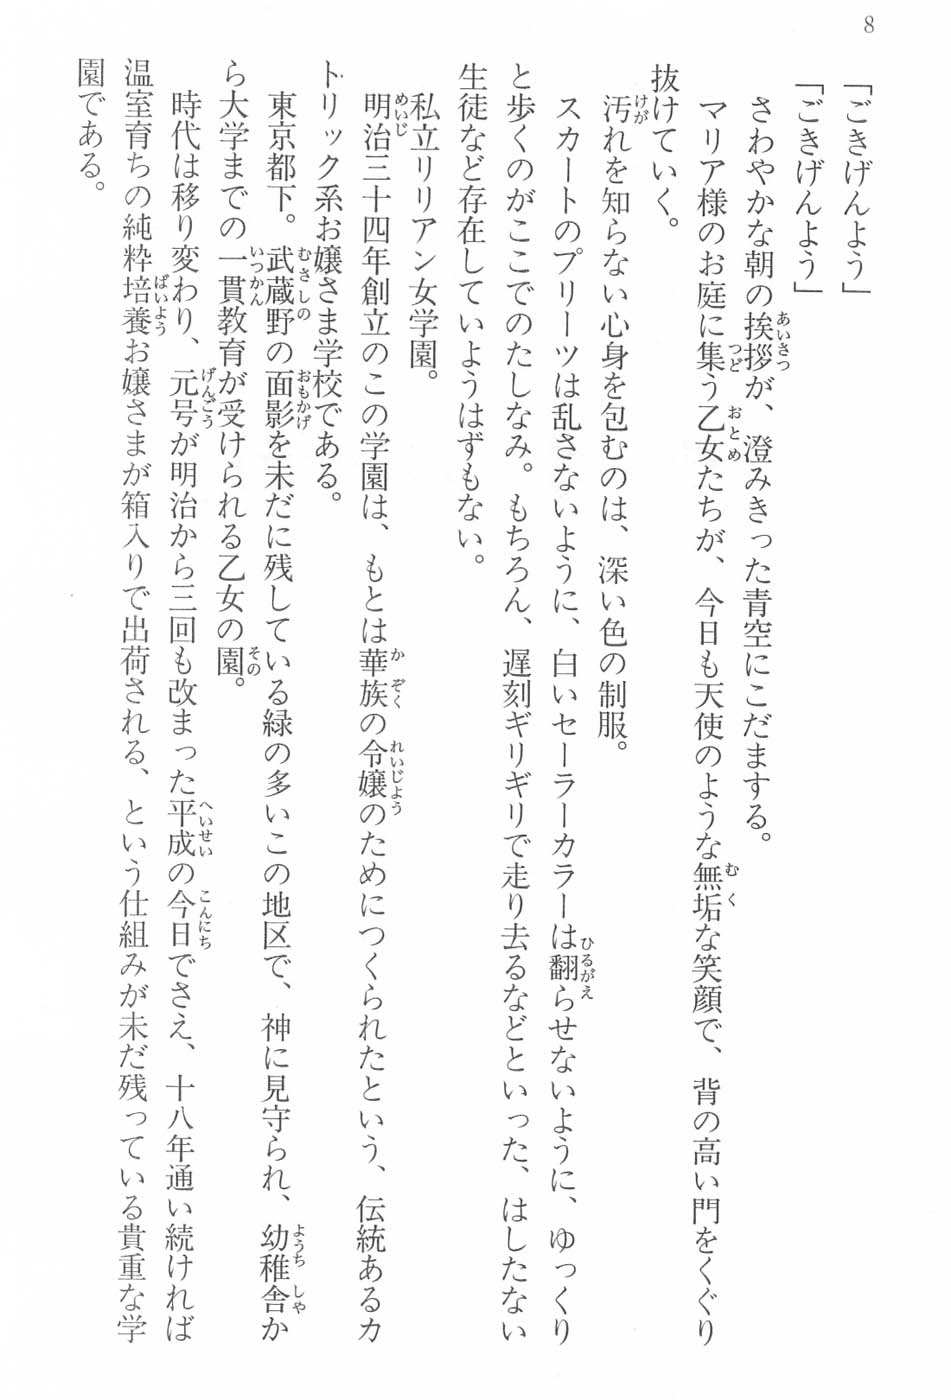 8
「ごきげんよう」
「ごきげんよう」
さわやかな朝の挨拶が、澄みきった青空にこだまする。
マリア様のお庭に集う乙女たちが、今日も天使のような無垢な笑顔で、背の高い門をくぐり
抜けていく。
汚れを知らない心身を包むのは、深い色の制服。
スカートのプリーツは乱さないように、白いセーラーカラーは翻らせないように、ゆっくり
と歩くのがここでのたしなみ。もちろん、遅刻ギリギリで走り去るなどといった、はしたない
生徒など存在していようはずもない。
私立リリアン女学園。
明治三十四年創立のこの学園は、もとは華族の令嬢のためにつくられたという、伝統あるカ
トリック系お嬢さま学校である。
東京都下。武蔵野の面影を未だに残している緑の多いこの地区で、神に見守られ、幼稚舎か
ら大学までの一貫教育が受けられる乙女の園。
時代は移り変わり、元号が明治から三回も改まった平成の今日でさえ、十八年通い続ければ
温室育ちの純粋培養お嬢さまが箱入りで出荷される、という仕組みが未だ残っている貴重な学
園である。